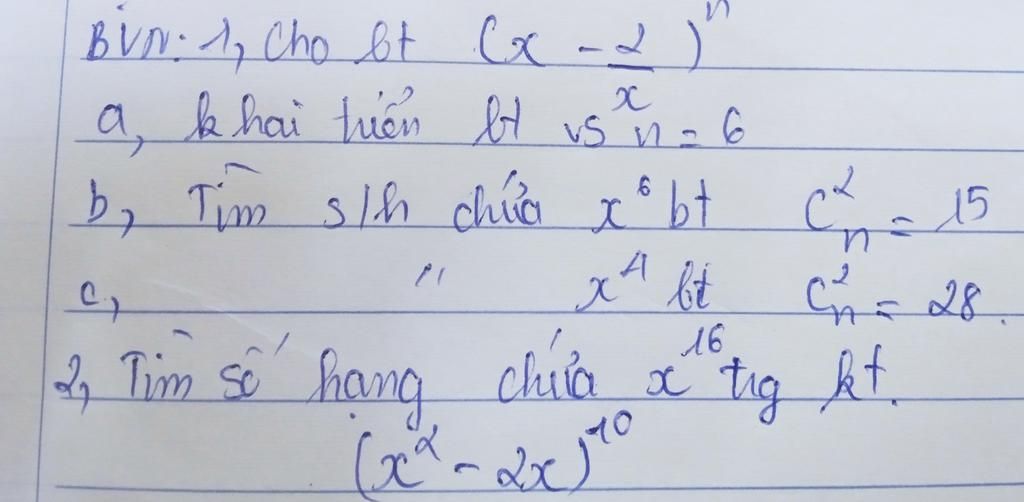 BVN: 1, Cho bt (x - 2/x)^n
a, khai triển bt vs n = 6
b, Tìm s/h chứa x^6 bt C_n^2 = 15
c, " x^4 bt C_n^2 = 28.
2, Tìm số hạng chứa x^16 tng kt.
(x^2 - 2x)^10